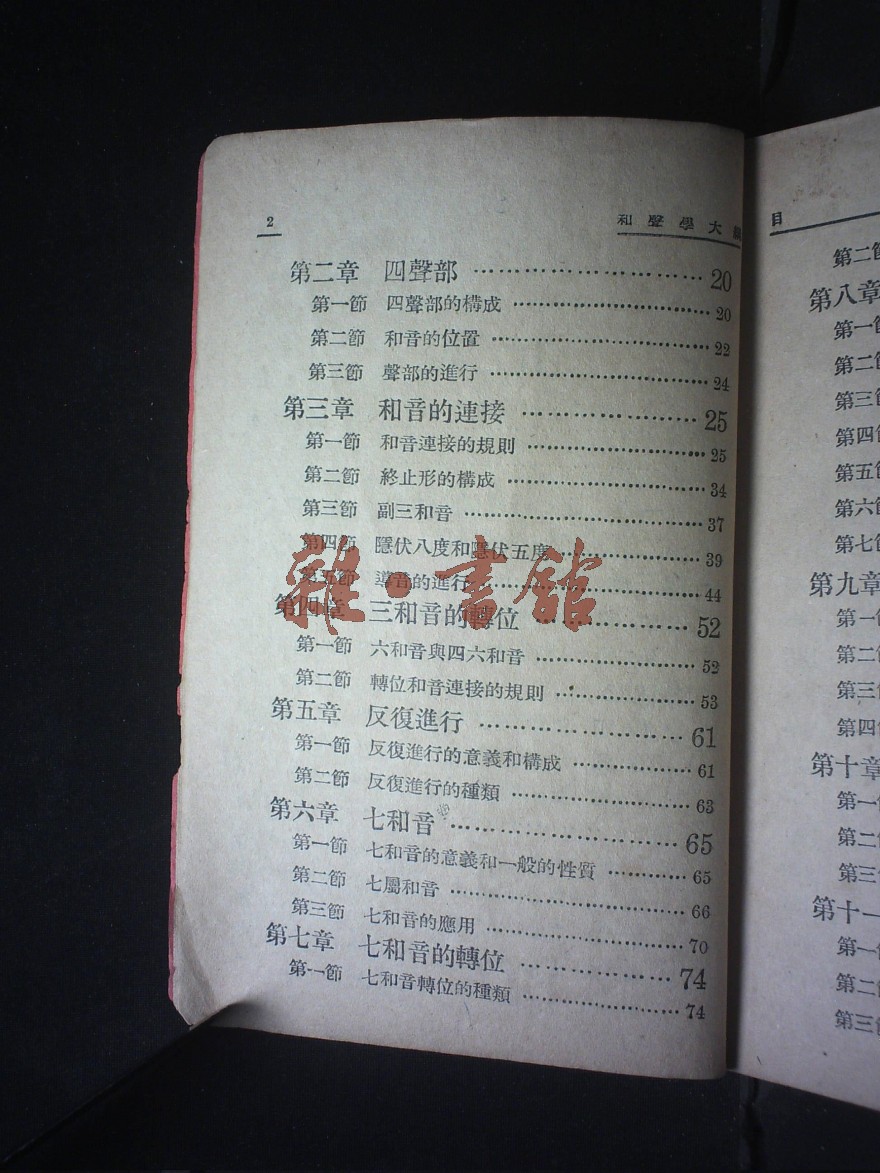 2
和聲學大綱
第二章 四聲部 ……………………… 20
第一節 四聲部的構成 ……………………… 20
第二節 和音的位置 ……………………… 22
第三節 聲部的進行 ……………………… 24
第三章 和音的連接 ……………………… 25
第一節 和音連接的規則 ……………………… 25
第二節 終止形的構成 ……………………… 34
第三節 副三和音 ……………………… 37
第四節 隱伏八度和隱伏五度 ……………………… 39
第五節 導音的進行 ……………………… 44
第四章 三和音的轉位 ……………………… 52
第一節 六和音與四六和音 ……………………… 52
第二節 轉位和音連接的規則 ……………………… 53
第五章 反復進行 ……………………… 61
第一節 反復進行的意義和構成 ……………………… 61
第二節 反復進行的種類 ……………………… 63
第六章 七和音 ……………………… 65
第一節 七和音的意義和一般的性質 ……………………… 65
第二節 七屬和音 ……………………… 66
第三節 七和音的應用 ……………………… 70
第七章 七和音的轉位 ……………………… 74
第一節 七和音轉位的種類 ……………………… 74
雜·書館
目
第二節
第八章
第一節
第二節
第三節
第四節
第五節
第六節
第七節
第九章
第一節
第二節
第三節
第四節
第十章
第一節
第二節
第三節
第十一
第一節
第二節
第三節